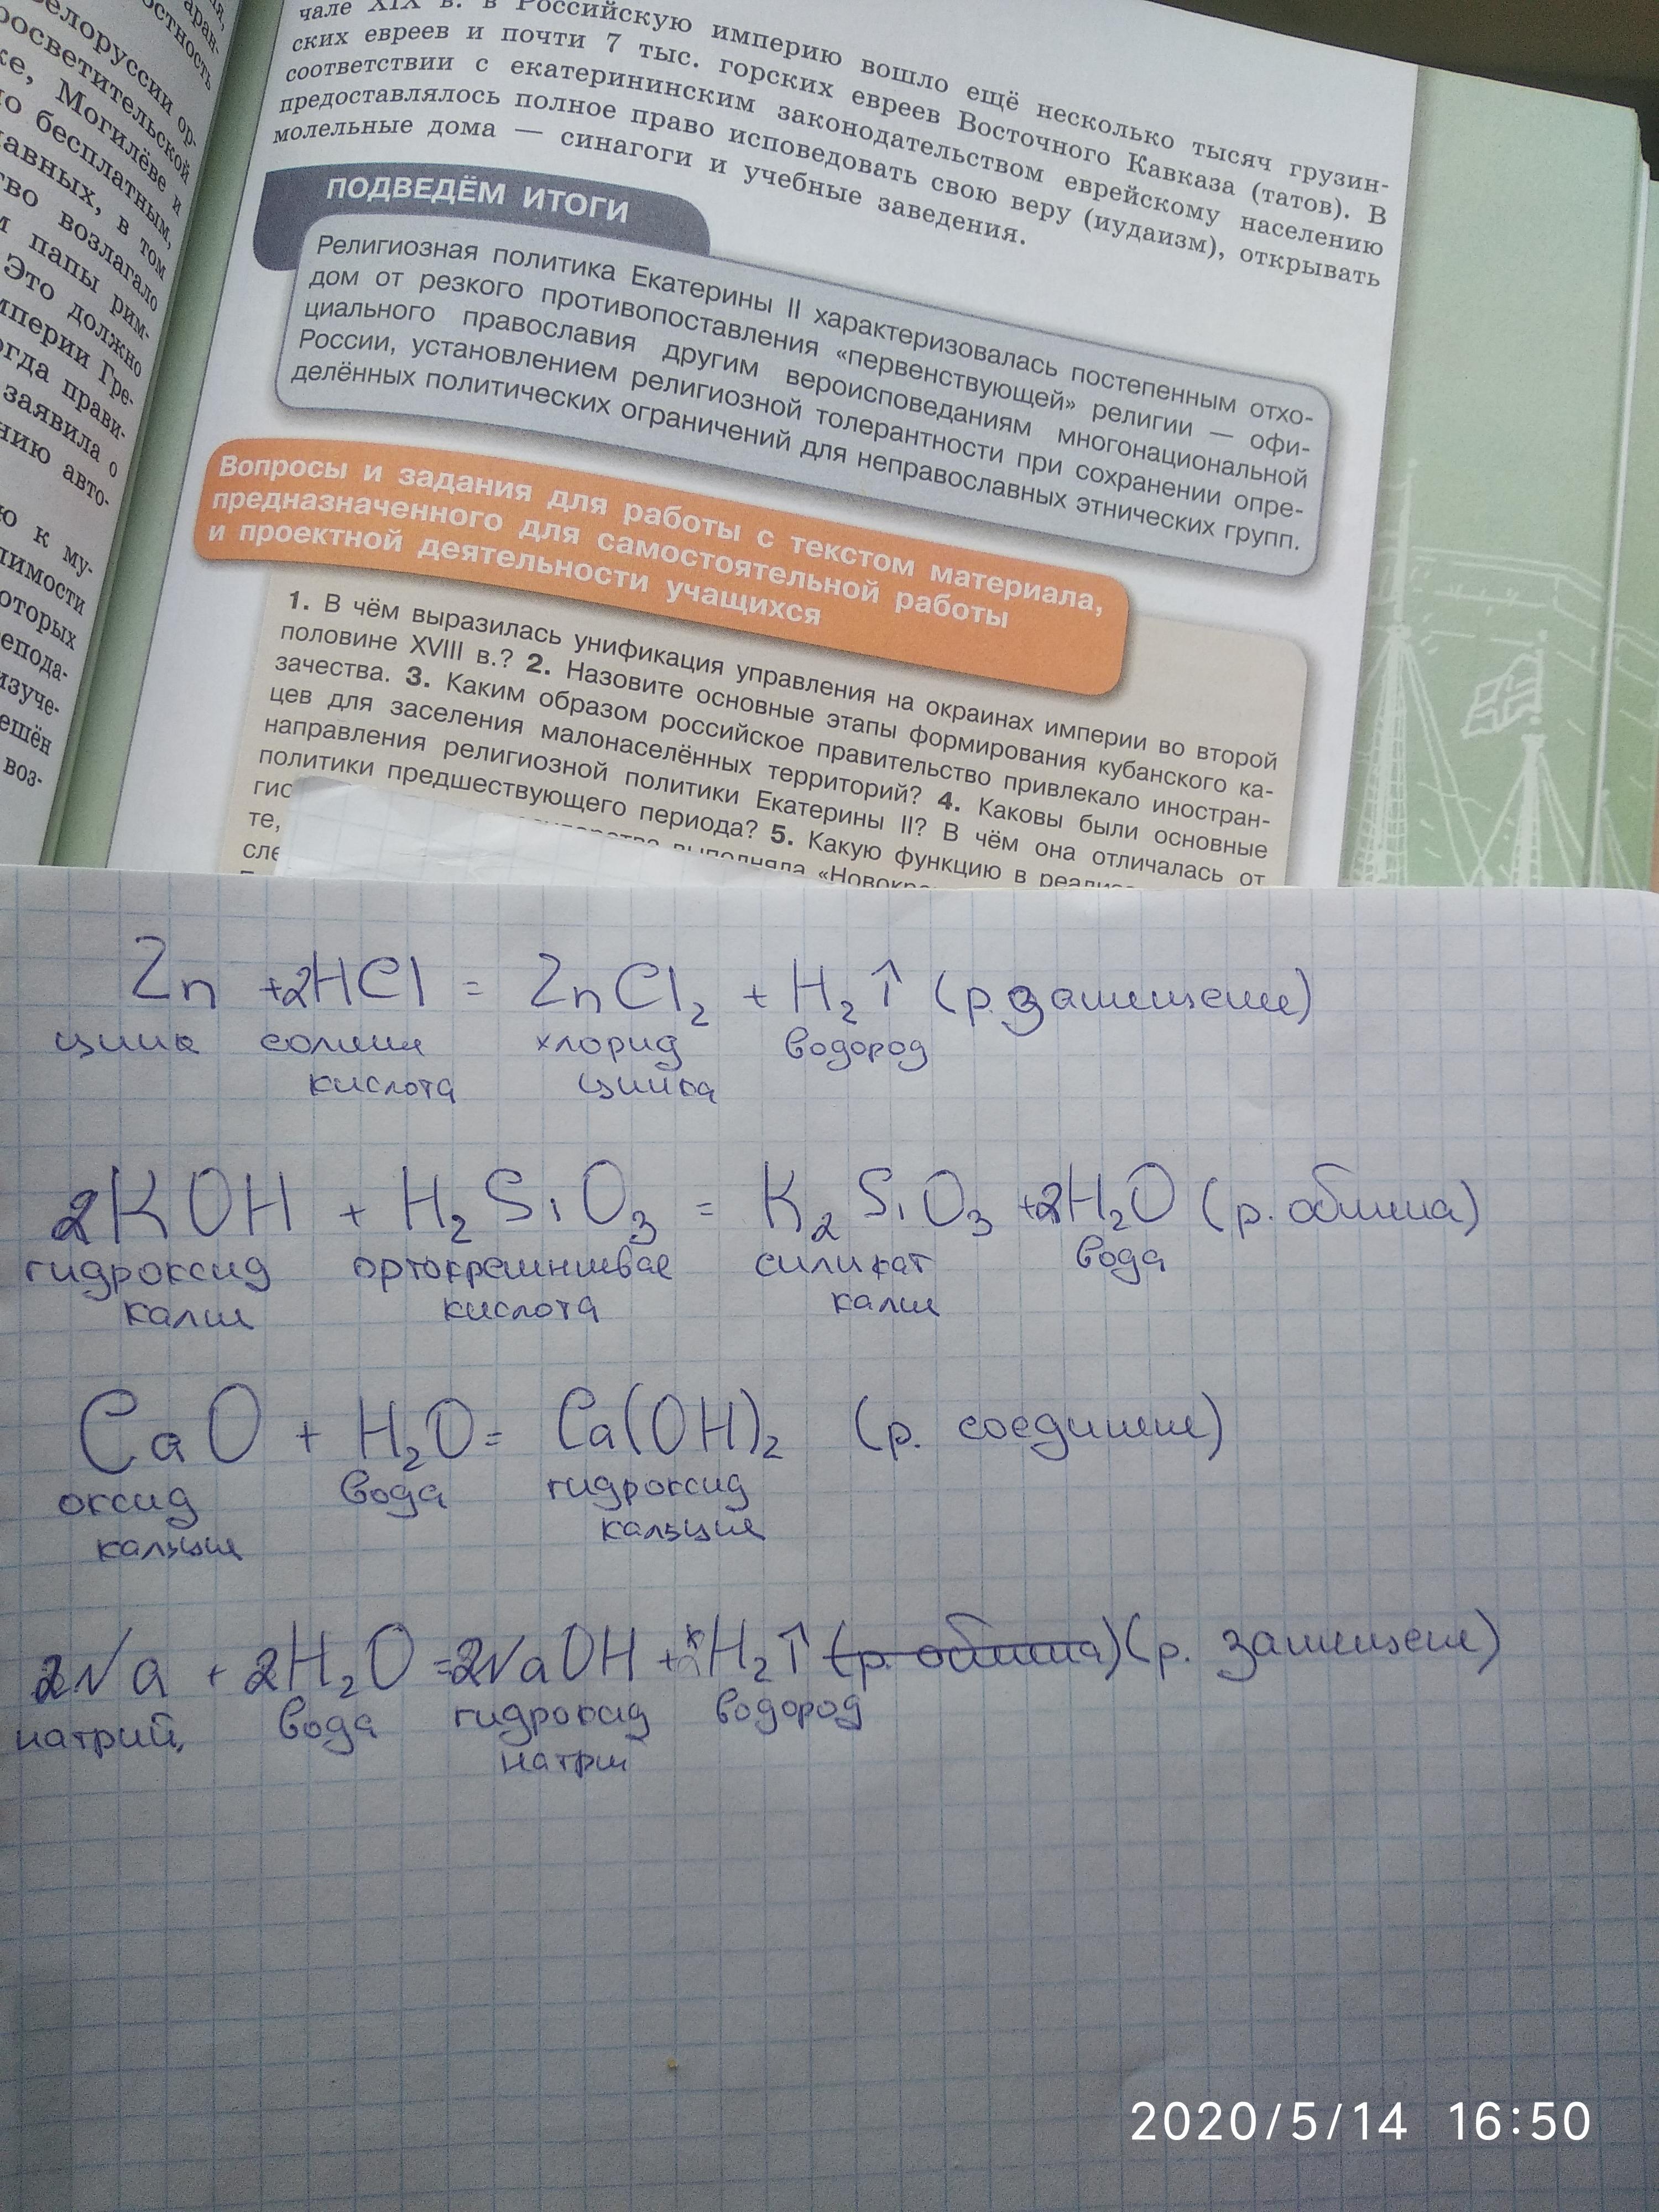 елоруссии ор-
росветительской
ке, Могилёве и
о бесплатным,
лавных, в том
тво возлагало
м папы рим-
Это должно
мперии Гре-
огда прави-
заявила о
нию авто-
ю к му-
лимости
оторых
епода-
изуче-
ешён
воз-
чале XIX в. в Российскую империю вошло ещё несколько тысяч грузин-
ских евреев и почти 7 тыс. горских евреев Восточного Кавказа (татов). В
соответствии с екатерининским законодательством еврейскому населению
предоставлялось полное право исповедовать свою веру (иудаизм), открывать
молельные дома — синагоги и учебные заведения.
ПОДВЕДЁМ ИТОГИ
Религиозная политика Екатерины II характеризовалась постепенным отхо-
дом от резкого противопоставления «первенствующей» религии — офи-
циального православия другим вероисповеданиям многонациональной
России, установлением религиозной толерантности при сохранении опре-
делённых политических ограничений для неправославных этнических групп.
Вопросы и задания для работы с текстом материала,
предназначенного для самостоятельной работы
и проектной деятельности учащихся
1. В чём выразилась унификация управления на окраинах империи во второй
половине XVIII в.? 2. Назовите основные этапы формирования кубанского ка-
зачества. 3. Каким образом российское правительство привлекало иностран-
цев для заселения малонаселённых территорий? 4. Каковы были основные
направления религиозной политики Екатерины II? В чём она отличалась от
политики предшествующего периода? 5. Какую функцию в реализ
гио выполняла «Новокре
те,
сле
Zn +2HCl = ZnCl₂ + H₂↑ (р. замещение)
цинк соляная хлорид водород
кислота цинка
2KOH + H₂SiO₃ = K₂SiO₃ +2H₂O (р. обмена)
гидроксид ортокремниевая силикат вода
калия кислота калия
CaO + H₂O = Ca(OH)₂ (р. соединение)
оксид вода гидроксид
кальция кальция
2Na + 2H₂O =2NaOH + H₂↑ (р. обмена) (р. замещение)
натрий, вода гидроксид водород
натрия
2020/5/14 16:50